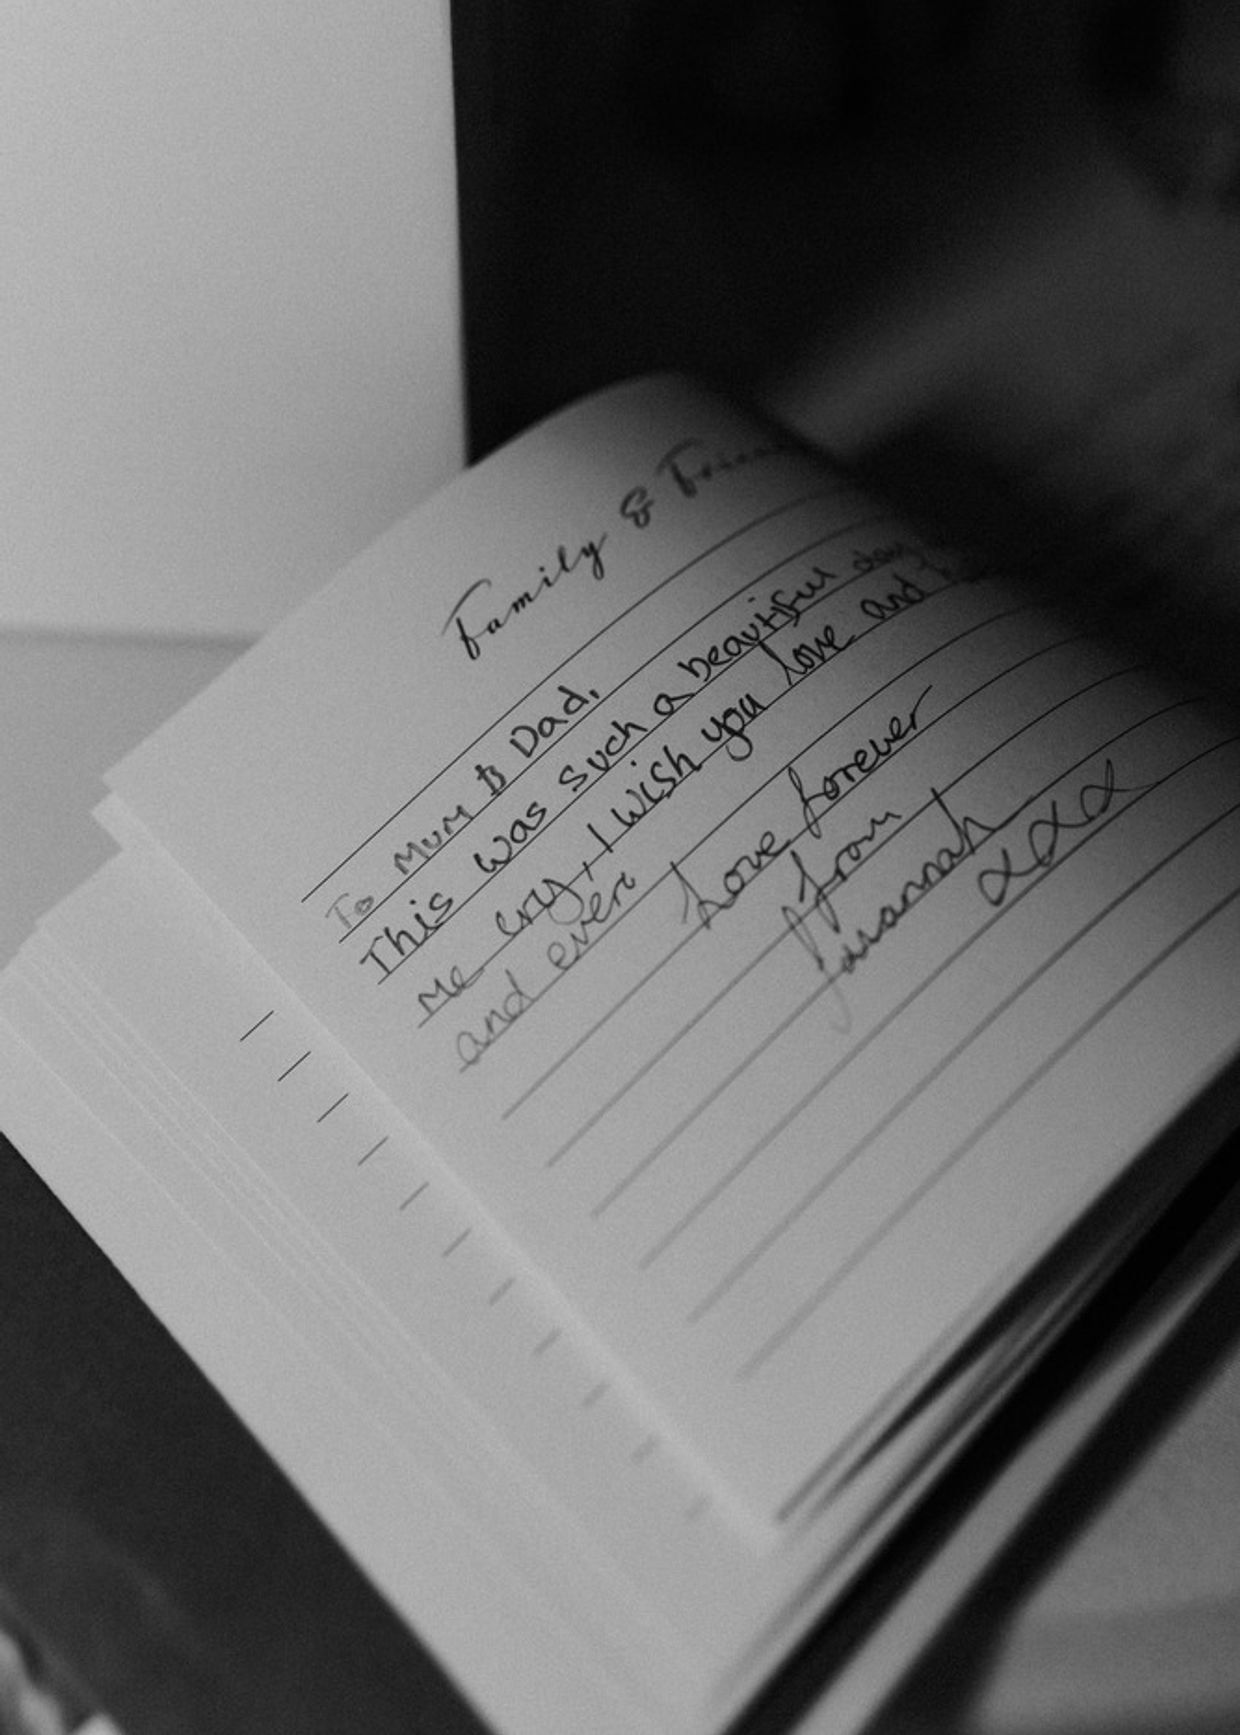 Family &
To Mum & Dad,
This was such a beautiful day
me cry, I wish you love and
and ever
Love forever
from
Savannah
xxx